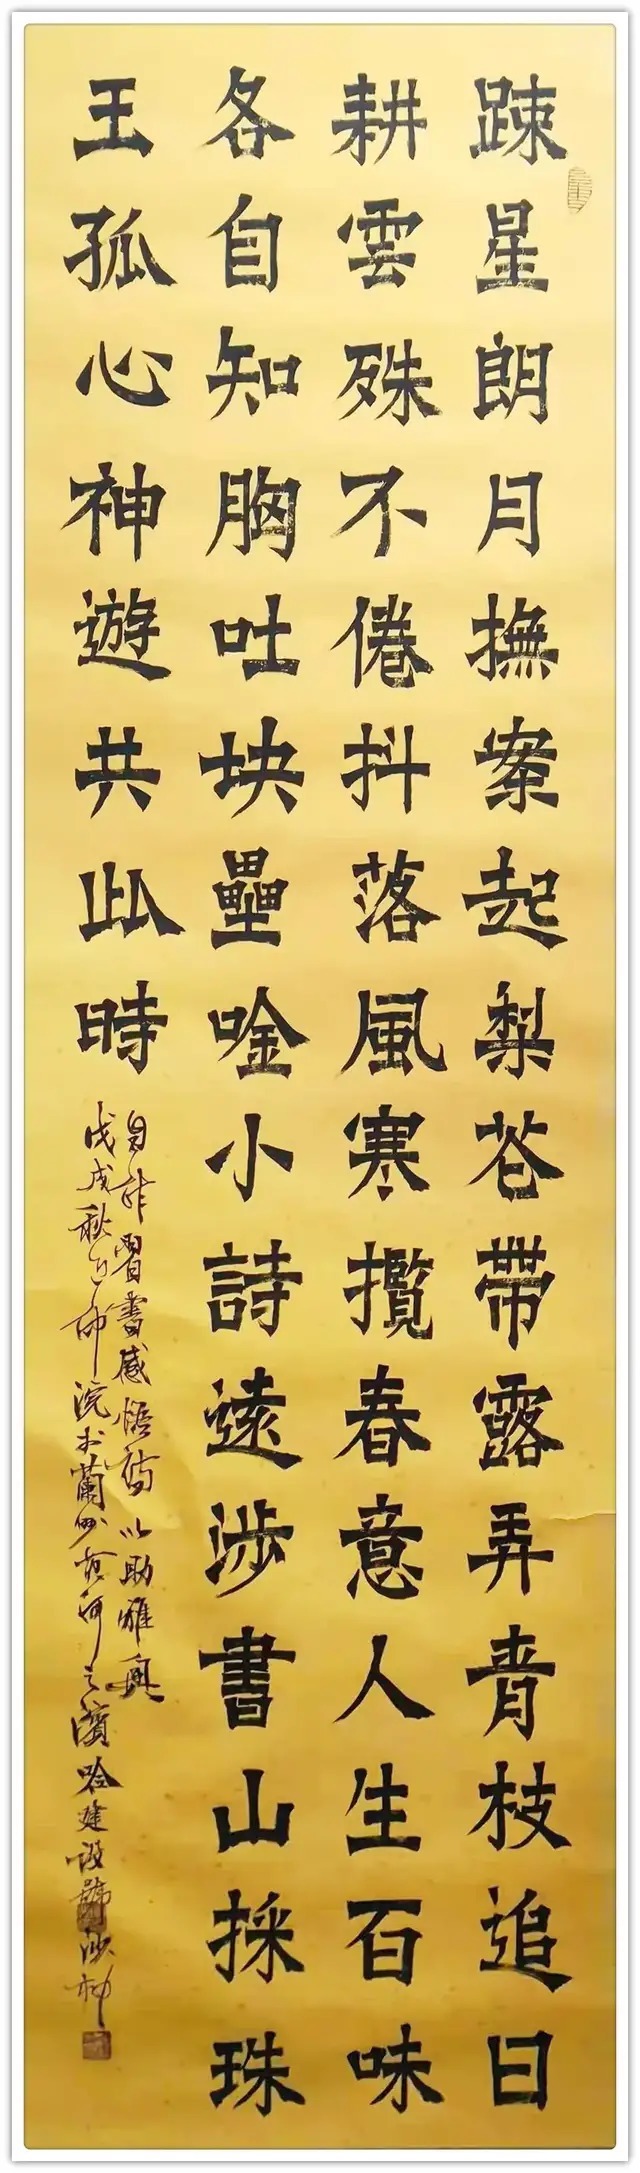 踈星朗月撫案起梨花帶露弄青枝追日
耕雲殊不倦抖落風寒攬春意人生百味
各自知胸吐块壘唫小詩遠涉書山採珠
王孤心神遊共此時
自作習書感悟詩以助雅興
戊戌秋之仲浣於蘭州黄河之濱哈建设號沙柳